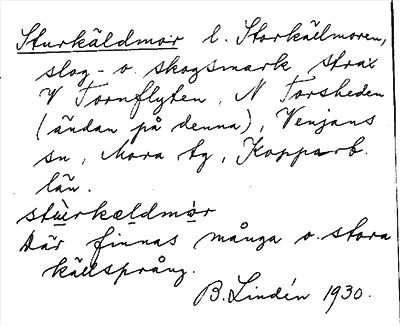 Sturkäldmor l. Storkäelmoren,
slog- o. skogsmark strax
V Tornflyten, N Torsheden
(ändan på denna), Venjans
sn, Mora tg, Kopparb.
län.
stùrkældmor
Där finnas många o. stora
källsprång.
B. Lindén 1930.